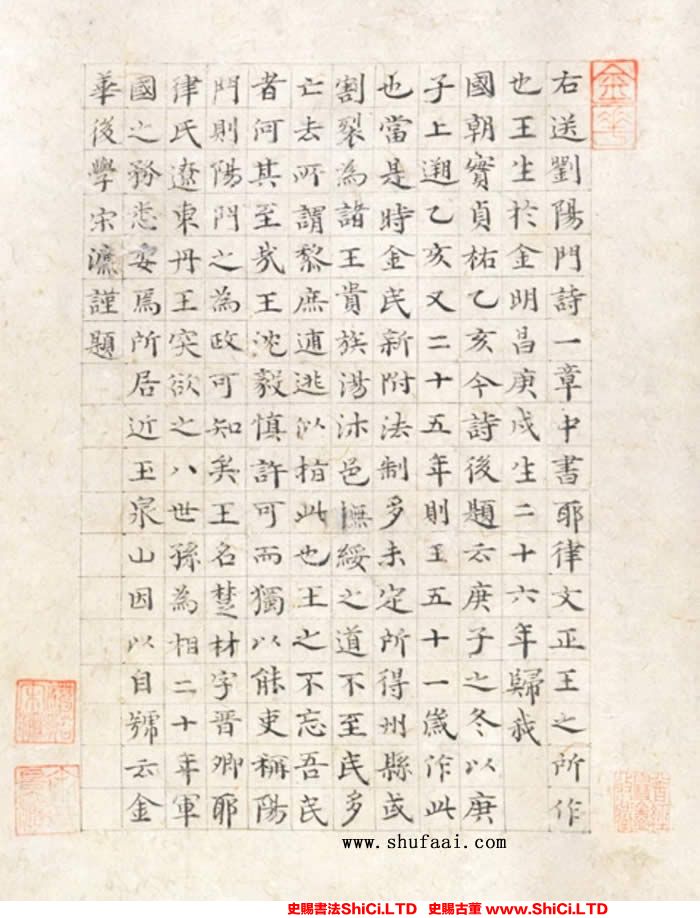 金華
右送劉陽門詩一章中書耶律文正王之所作
也王生於金明昌庚戌生二十六年歸我
國朝實貞祐乙亥今詩後題云庚子之冬以庚
子上遡乙亥又二十五年則王五十一歲作此
也當是時金民新附法制多未定所得州縣或
割裂為諸王貴族湯沐邑撫綏之道不至民多
亡去所謂黎庶逋逃以指此也王之不忘吾民
者何其至哉王沈毅慎許可而獨以能吏稱陽
門則陽門之為政可知矣王名楚材字晉卿耶
律氏遼東丹王突欲之八世孫為相二十年軍
國之務悉安焉所居近玉泉山因以自號云金
華後學宋濂謹題
www.shufaai.com
史賜書法ShiCi.LTD 史賜古董 www.ShiCi.LTD